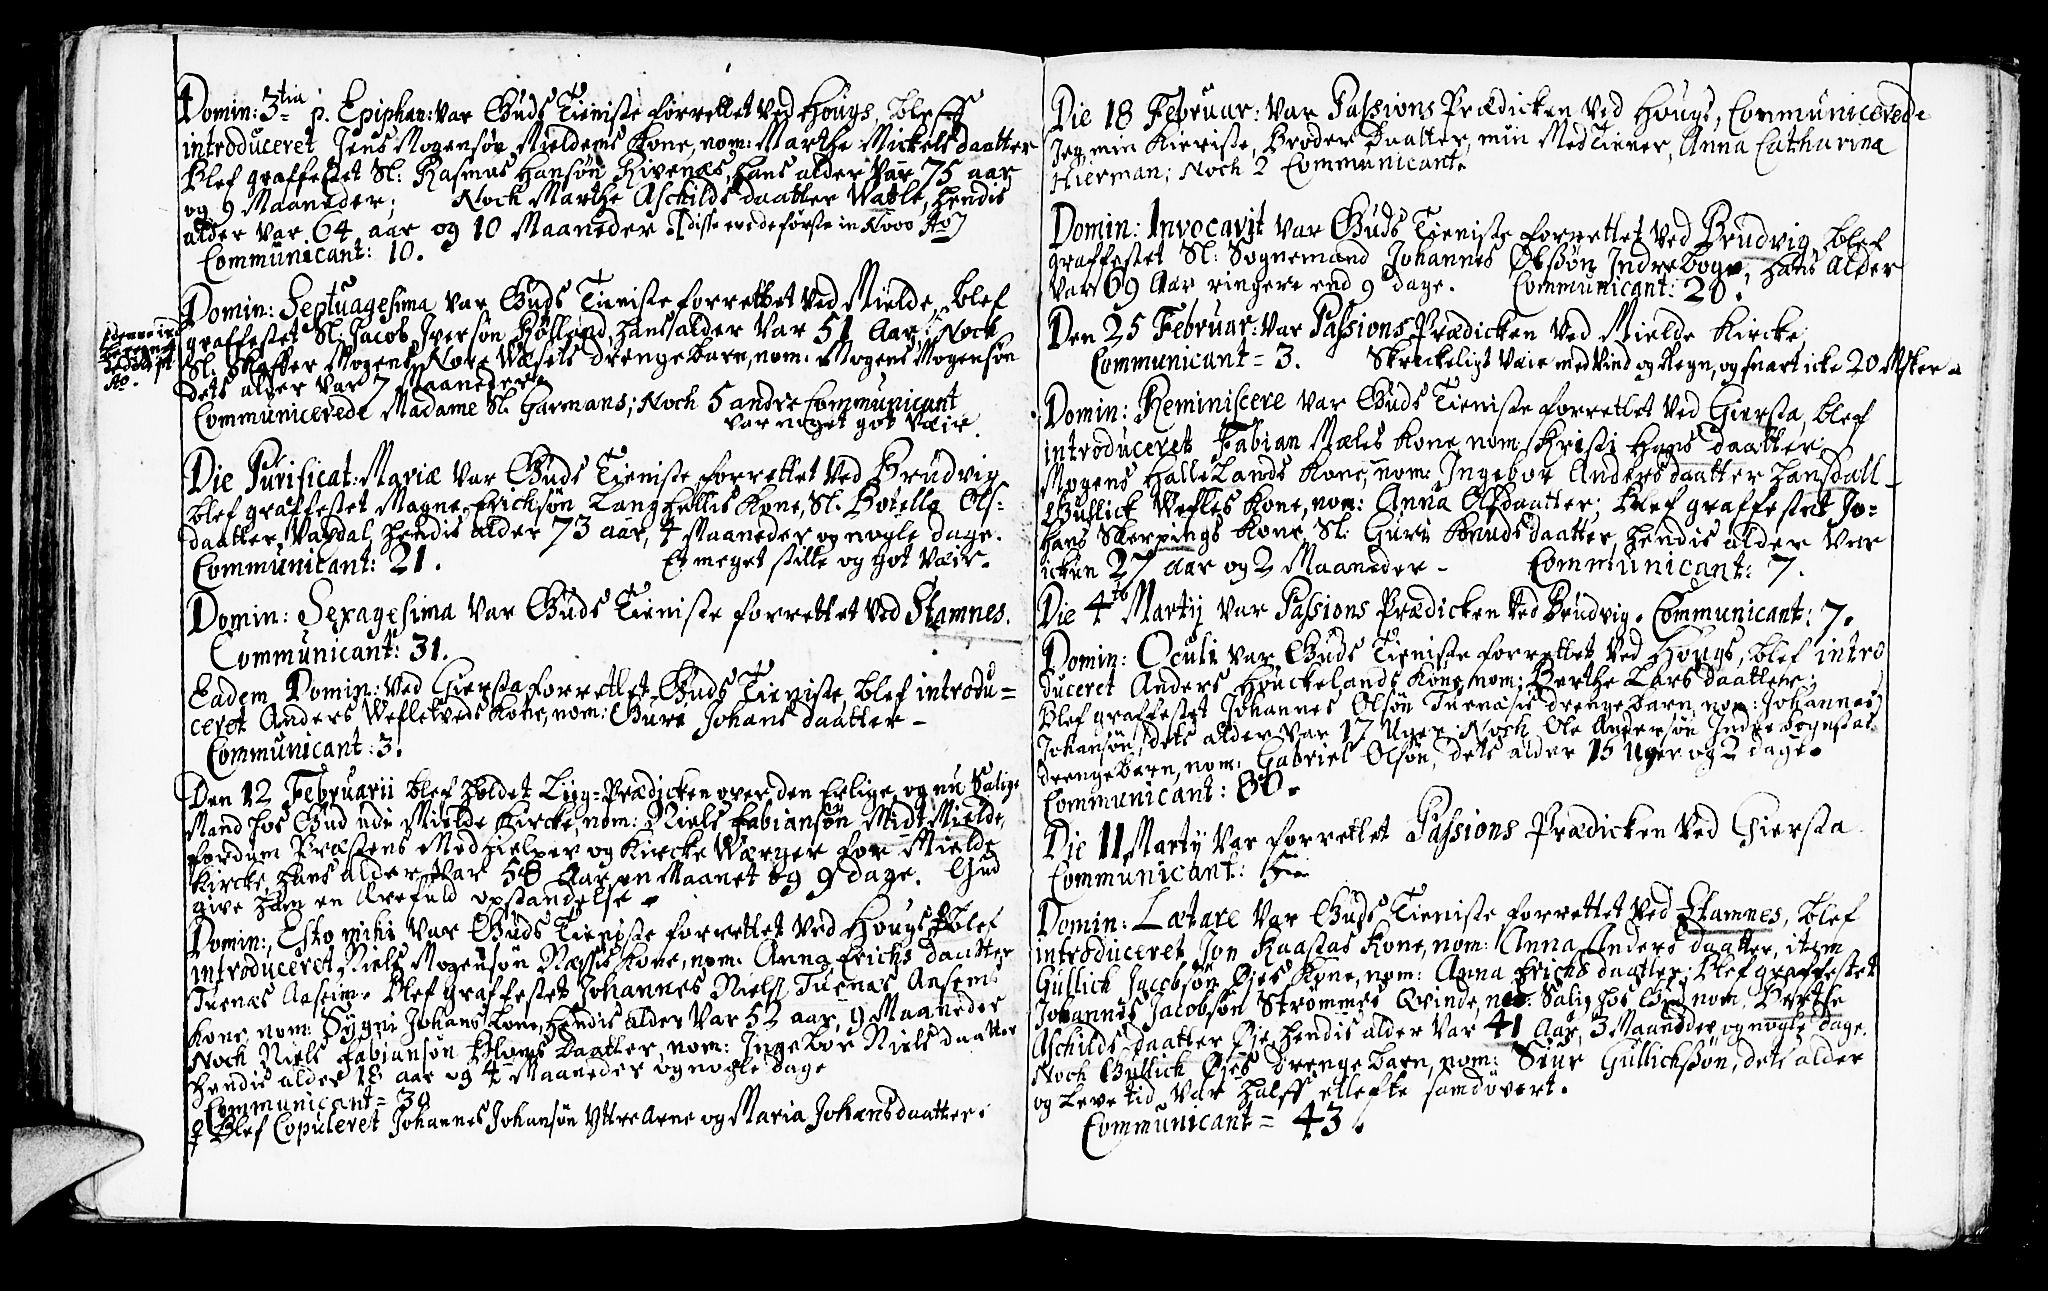 Domin: 3tia p. Epiphan: var Guds Tieniste forrettet ved Hougs, bleff
introduceret Jens Mogensøn Mieldems Kone, nom: Marthe Mickels daatter
Blef graffestet Sl: Rasmus Hansøn Rivenæs, hans alder var 75 aar
og 9 Maaneder; Noch Marthe Aschilds daatter Watle, hendis
alder var 64 aar og 10 Maaneder [disse ere de første in Novo Ao]
Communicant: 10.
Domin: Septuagesima var Guds Tieniste forrettet ved Mielde, blef
graffestet Sl: Jacob Iversøn Hølland, hans alder var 51 Aar, Noch
Sl. Skaffer Mogens Nore Wæsets drengebarn, nom: Mogens Mogensøn
dets alder var 7 Maaneder
Communicerede Madame Sl. Garmans; Noch 5 andre Communicant
var noget got Væir.
Die Purificat: Mariæ var Guds Tieniste forrettet ved Brudvig
blef graffestet Magne Erichsøn Langhellis Kone, Sl. Botella Ols=
daatter Vasdal, hendis alder 73 aar, 4 Maaneder og nogle dage.
Communicant: 21. Et meget stille og got Væir.
Domin: Sexagesima var Guds Tieniste forrettet ved Stamnes.
Communicant: 31.
Eadem Domin: ved Giersta forrettet Guds Tieniste, blef introdu=
ceret Anders Wefletveds Kone, nom: Gure Johans daatter –
Communicant: 3.
Den 12 Februarii blef holdet Liig=Prædicken over den Erlige og nu Salige
Mand hos Gud udi Mielde Kircke, nom: Niels Fabiansøn Midt Mielde,
fordum Præstens Medhielper og Kircke Wærger for Mielde
Kircke, hans alder var 58 Aar, en Maanet og 9 dage. Gud
give ham en ærefuld opstandelse.
Domin: Esto mihi var Guds Tieniste forrettet ved Hougs, blef
introduceret Niels Mogensøn Næssis Kone, nom: Anna Erichs daatter
Tuenæs Anseim. Blef graffestet Johannes Niels Tuenæs Ansems
Kone, nom: Sygni Johans daatter, hendis alder var 52 aar, 9 Maaneder
Noch Niels Fabiansøn Hougs daatter, nom: Ingebor Niels daatter
hendis alder 18 aar og 4 Maaneder og nogle dage
Communicant= 30
Blef Copuleret Johannes Johansøn Yttre Arne og Maria Johansdaatter
Die 18 Februar: var Passions Prædicken ved Hougs, Communicerede
Jeg min Kieriste, Broder Daatter, min Medtiener, Anna Catharina
Hierman; Noch 2 Communicant.
Domin: Invocavit var Guds Tieniste forrettet ved Brudvig, blef
graffestet Sl: Sognemand Johannes Olssøn Indre Boge, hans Alder
var 69 Aar ringere end 9 dage. Communicant: 20.
Den 25 Februar: var Passions Prædicken ved Mielde Kircke,
Communicant= 3. Skreckeligt Væir med Vind og Regn, og snart icke 20 Msker
Domin: Reminiscere var Guds Tieniste forrettet ved Giersta, blef
introduceret Fabian Mæles Kone nom: Kristi Hans daatter
Mogens Hallelands Kone, nom: Ingebor Anders daatter
Gullick Wefles Kone, nom: Anna Olsdaatter; Blef graffestet Jo=
hans Skerpings Kone, Sl: Guri Knuds daatter, hendis alder var
icken 27 aar og 2 Maaneder – Communicant: 7.
Die 4to Martij var Passions Prædicken ved Brudvig. Communicant: 7.
Domin: Oculi var Guds Tieniste forrettet ved Hougs, blef intro
duceret Anders Houckelands Kone, nom: Berthe Lars daatter;
Blef graffestet Johannes Olsøn Tuenæsis drengebarn, nom: Johannes
Johansøn, dets alder var 17 Uger. Noch Ole Andersøn Indre
drengebarn, nom: Gabriel Olsøn, dets alder 15 Uger og 2 dage.
Communicant: 80.
Die 11 Martij var forrettet Passions Prædicken ved Giersta
Communicant: 5
Domin: Lætare var Guds Tieniste forrettet ved Stamnes, blef
introduceret Jon Kaastas Kone, nom: Anna Anders daatter, item
Gullich Jacobsøn Øjes Kone, nom: Anna Erichs daatter; Blef graffestet
Johannes Jacobsøn Strømmes Qvinde, nu Salig hos Gud nom. Berthe
Aschilds daatter Øje, hendis alder var 41 Aar, 3 Maaneder og nogle dage.
Noch Gullich Øjes drengebarn, nom: Siur Gullichssøn, dets alder
og leve tid var halff ellefte samdövert.
Communicant= 43.